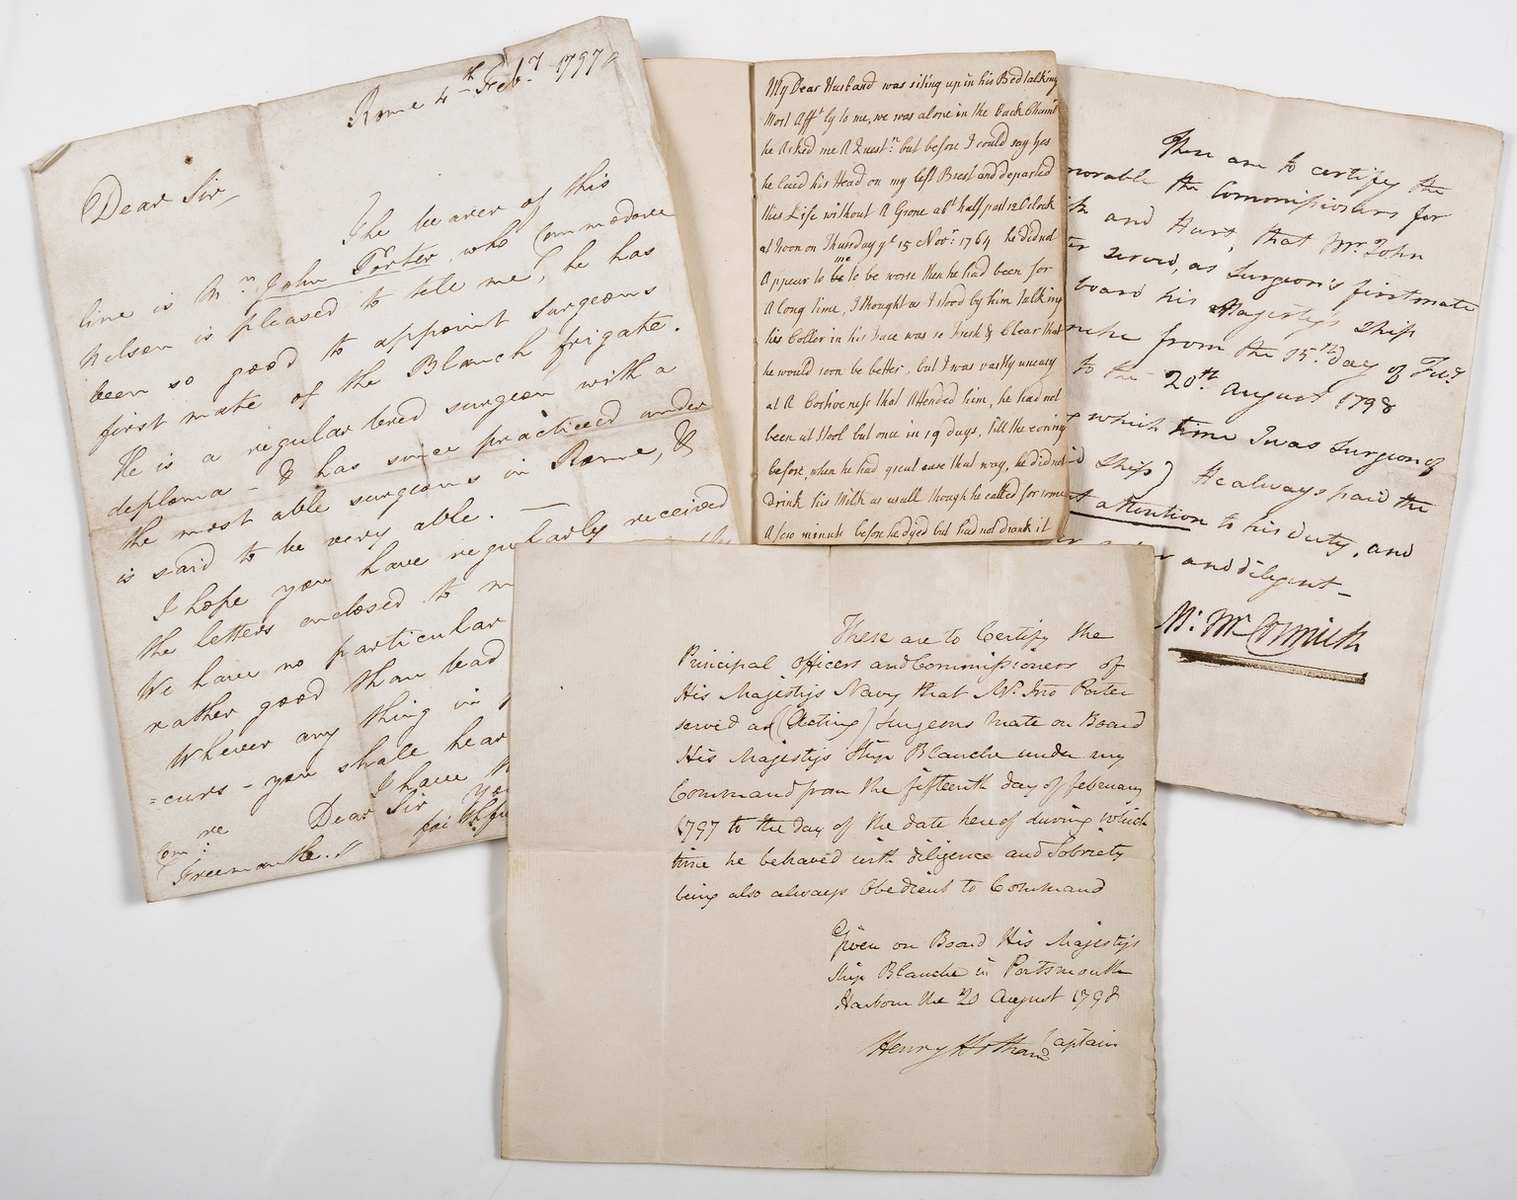 Rome 4th Feby 1797
Dear Sir,
The bearer of this
line is Mr John Porter, who Commodore
Nelson is pleased to tell me, he has
been so good to appoint surgeons
first mate of the Blanch frigate.
He is a regular bred surgeon with a
deploma - & has since practiced under
the most able surgeons in Rome, &
is said to be very able. —
I hope you have regularly received
the letters enclosed to
We have no particular
rather good than bad
Whever any thing in
=curs - you shall hear
I have
Dear Sir
Comre
Freemantle. //
My Dear Husband was siting up in his Bed talking
Most Afftly to me, we was alone in the back Chamr
he Asked me A Questn: but before I could say yes
he laid his Head on my left Brest and departed
this Life without A Grone abt half past 12 oClock
at noon on Thursday ye 15 Novr 1764 he did not
Appear to me to be worse then he had been for
A Long time, I thought as I stood by him talking
his Coller in his Face was so Fresh & Clear that
he would soon be better, but I was vastly uneasy
at A Costiveness that Attended him, he had not
been at Stool but once in 19 days, till the
before, when he had great ease that way, he did not
Drink his Milk as usall though he called for some
A few minuts before he dyed but had not drank it
These are to certify the
norable the Commissioners for
and Hurt, that Mr. John
served, as Surgeon's first mate
board his Majesty's Ship
nche from the 15th day of
to the 20th August 1798
which time I was Surgeon of
Ship) He always paid the
attention to his duty, and
and diligent —
M: McCormick
These are to Certify the
Principal Officers and Commissioners of
His Majestys Navy that Mr. Jno Porter
served as (Acting) Surgeons Mate on Board
His Majestys Ship Blanche under my
Command from the fifteenth day of february
1797 to the day of the date hereof during which
time he behaved with diligence and Sobriety
being also always Obedient to Command
Given on Board His Majestys
Ship Blanche in Portsmouth
Harbour the 20 August 1798
Henry Hotham Captain